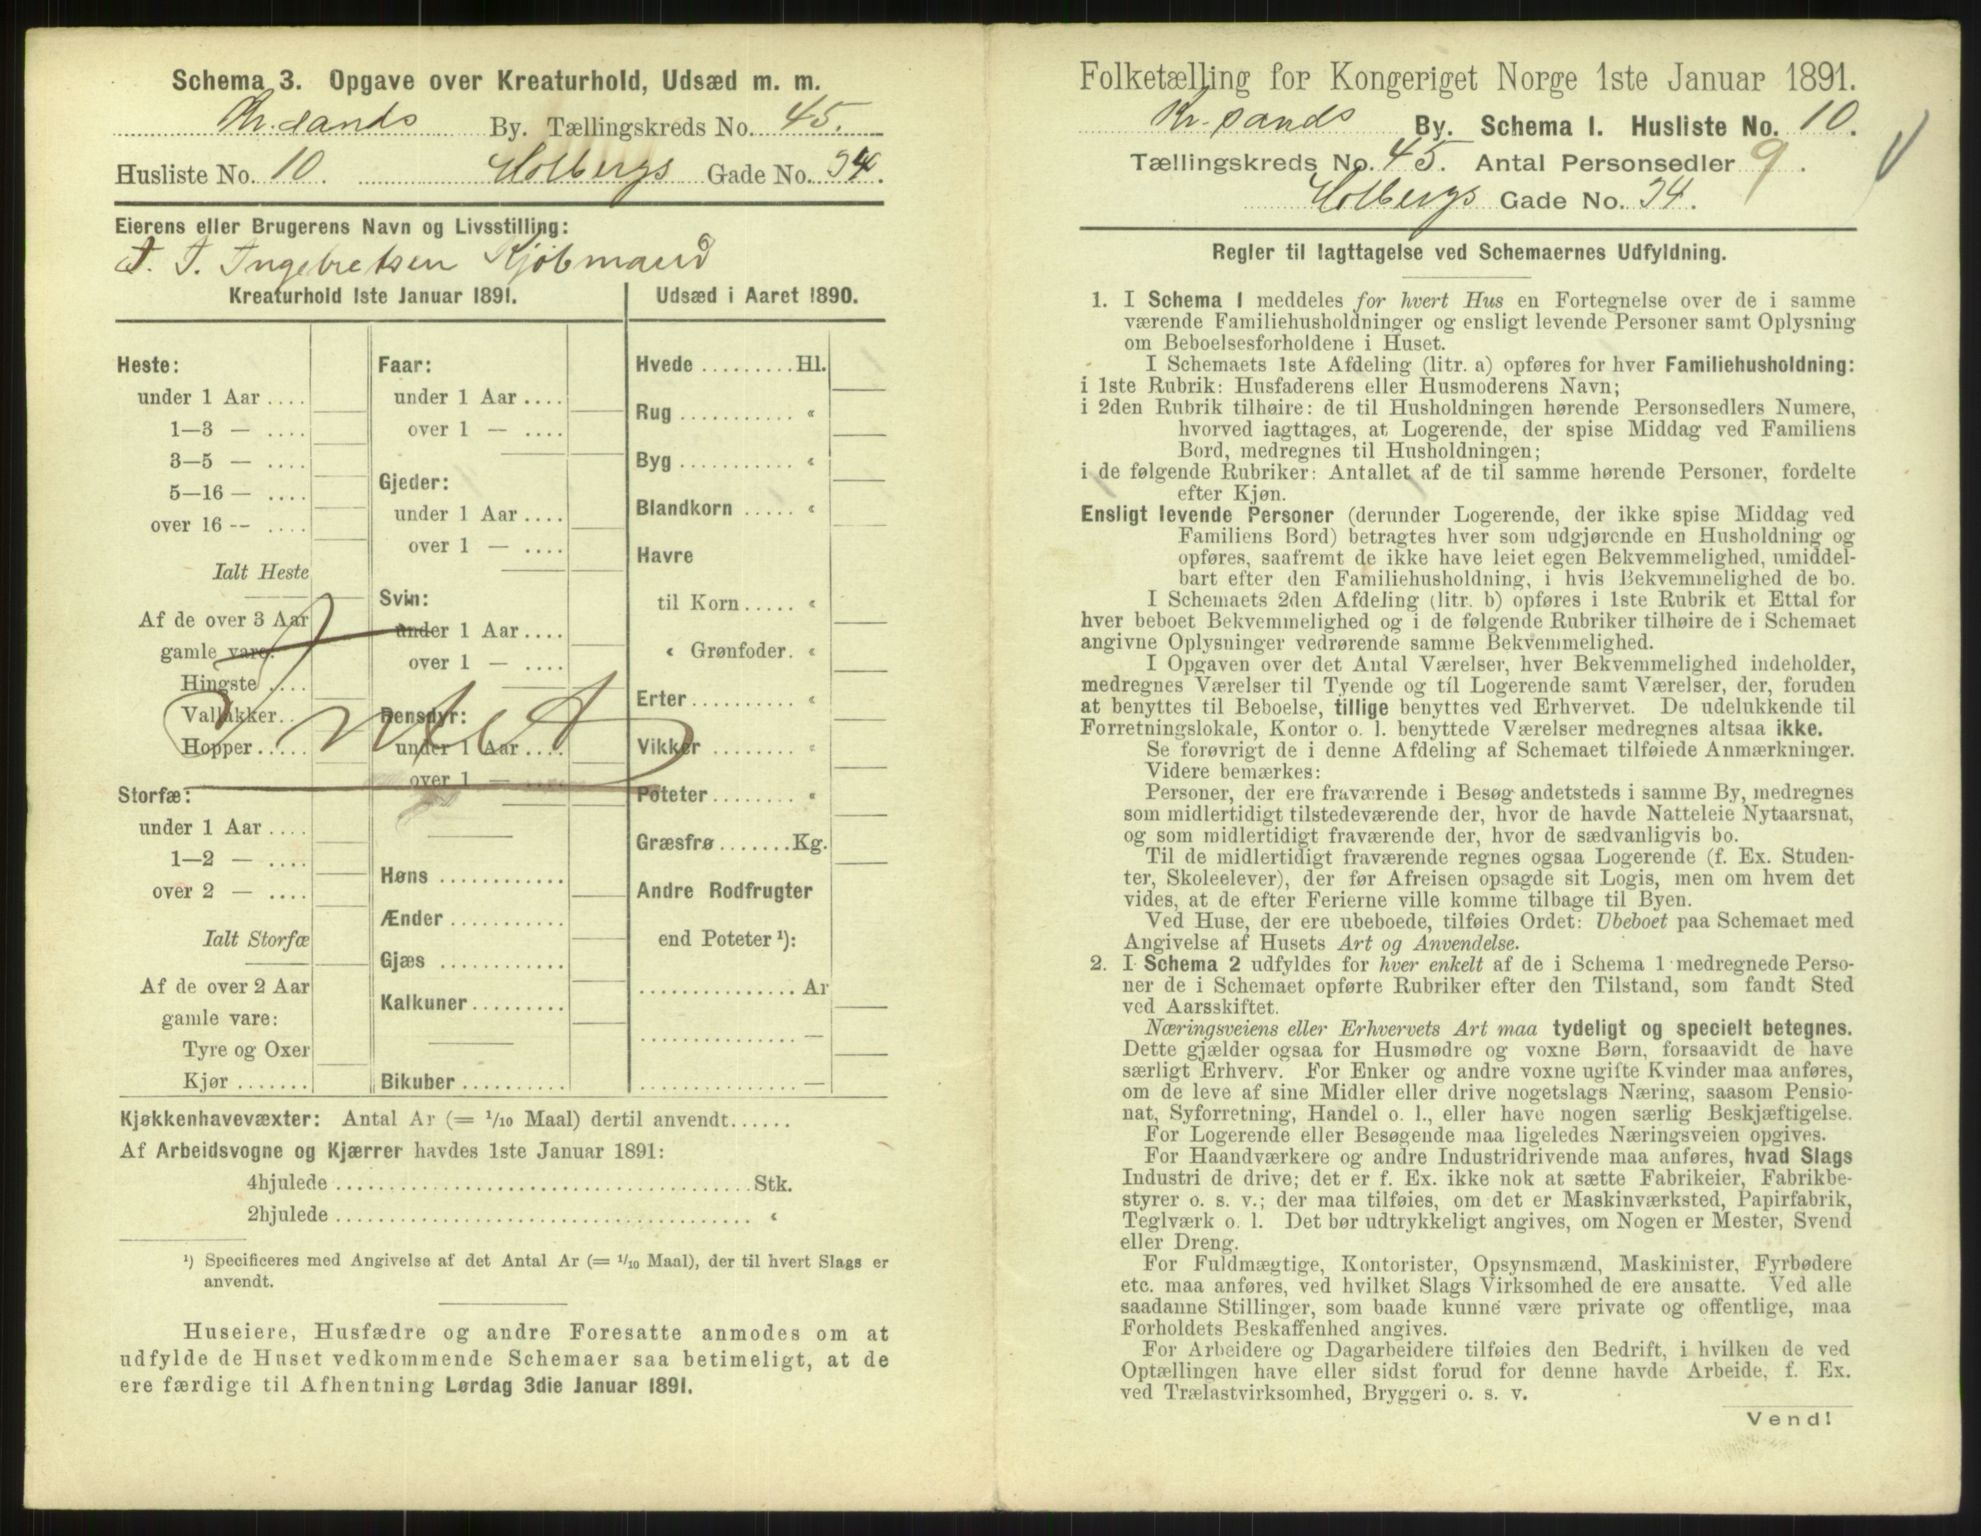 Schema 3. Opgave over Kreaturhold, Udsæd m. m.
Kr.sands By. Tællingskreds No. 45.
Husliste No. 10. Holbergs Gade No. 34.
Eierens eller Brugerens Navn og Livsstilling:
T. T. Ingebretsen Kjøbmand
Kreaturhold 1ste Januar 1891.
Heste:
under 1 Aar ....
1—3 — ....
3—5 — ....
5—16 — ....
over 16 -- ....
Ialt Heste
Af de over 3 Aar
gamle vare:
Hingste ....
Vallakker..
Hopper .....
Storfæ:
under 1 Aar ....
1—2 — ....
over 2 — ....
Ialt Storfæ
Af de over 2 Aar
gamle vare:
Tyre og Oxer
Kjør .......
Faar:
under 1 Aar ....
over 1 — ....
Gjeder:
under 1 Aar ....
over 1 — ....
Svin:
under 1 Aar ....
over 1 — ....
Rensdyr:
under 1 Aar ....
over 1 — ....
Høns ............
Ænder ...........
Gjæs ............
Kalkuner .........
Bikuber ..........
Intet
Udsæd i Aaret 1890.
Hvede ......... Hl.
Rug ........... «
Byg ........... «
Blandkorn ..... «
Havre
til Korn ..... «
« Grønfoder. «
Erter ......... «
Vikker ........ «
Poteter ........ «
Græsfrø ....... Kg.
Andre Rodfrugter
end Poteter ¹):
............... Ar
............... —
............... —
Kjøkkenhavevæxter: Antal Ar (= 1/10 Maal) dertil anvendt......
Af Arbeidsvogne og Kjærrer havdes 1ste Januar 1891:
4hjulede ........................................ Stk.
2hjulede ........................................ «
¹) Specificeres med Angivelse af det Antal Ar (= 1/10 Maal), der til hvert Slags er
anvendt.
Huseiere, Husfædre og andre Foresatte anmodes om at
udfylde de Huset vedkommende Schemaer saa betimeligt, at de
ere færdige til Afhentning Lørdag 3die Januar 1891.
Folketælling for Kongeriget Norge 1ste Januar 1891.
Kr.sands By. Schema I. Husliste No. 10.
Tællingskreds No. 45. Antal Personsedler 9.
Holbergs Gade No. 34.
Regler til Iagttagelse ved Schemaernes Udfyldning.
1. I Schema I meddeles for hvert Hus en Fortegnelse over de i samme
værende Familiehusholdninger og ensligt levende Personer samt Oplysning
om Beboelsesforholdene i Huset.
I Schemaets 1ste Afdeling (litr. a) opføres for hver Familiehusholdning:
i 1ste Rubrik: Husfaderens eller Husmoderens Navn;
i 2den Rubrik tilhøire: de til Husholdningen hørende Personsedlers Numere,
hvorved iagttages, at Logerende, der spise Middag ved Familiens
Bord, medregnes til Husholdningen;
i de følgende Rubriker: Antallet af de til samme hørende Personer, fordelte
efter Kjøn.
Ensligt levende Personer (derunder Logerende, der ikke spise Middag ved
Familiens Bord) betragtes hver som udgjørende en Husholdning og
opføres, saafremt de ikke have leiet egen Bekvemmelighed, umiddel-
bart efter den Familiehusholdning, i hvis Bekvemmelighed de bo.
I Schemaets 2den Afdeling (litr. b) opføres i 1ste Rubrik et Ettal for
hver beboet Bekvemmelighed og i de følgende Rubriker tilhøire de i Schemaet
angivne Oplysninger vedrørende samme Bekvemmelighed.
I Opgaven over det Antal Værelser, hver Bekvemmelighed indeholder,
medregnes Værelser til Tyende og til Logerende samt Værelser, der, foruden
at benyttes til Beboelse, tillige benyttes ved Erhvervet. De udelukkende til
Forretningslokale, Kontor o. l. benyttede Værelser medregnes altsaa ikke.
Se forøvrigt de i denne Afdeling af Schemaet tilføiede Anmærkninger.
Videre bemærkes:
Personer, der ere fraværende i Besøg andetsteds i samme By, medregnes
som midlertidigt tilstedeværende der, hvor de havde Natteleie Nytaarsnat,
og som midlertidigt fraværende der, hvor de sædvanligvis bo.
Til de midlertidigt fraværende regnes ogsaa Logerende (f. Ex. Studen-
ter, Skoleelever), der før Afreisen opsagde sit Logis, men om hvem det
vides, at de efter Ferierne ville komme tilbage til Byen.
Ved Huse, der ere ubeboede, tilføies Ordet: Ubeboet paa Schemaet med
Angivelse af Husets Art og Anvendelse.
2. I Schema 2 udfyldes for hver enkelt af de i Schema 1 medregnede Perso-
ner de i Schemaet opførte Rubriker efter den Tilstand, som fandt Sted
ved Aarsskiftet.
Næringsveiens eller Erhvervets Art maa tydeligt og specielt betegnes.
Dette gjælder ogsaa for Husmødre og voxne Børn, forsaavidt de have
særligt Erhverv. For Enker og andre voxne ugifte Kvinder maa anføres,
om de leve af sine Midler eller drive nogetslags Næring, saasom Pensio-
nat, Syforretning, Handel o. l., eller have nogen særlig Beskjæftigelse.
For Logerende eller Besøgende maa ligeledes Næringsveien opgives.
For Haandværkere og andre Industridrivende maa anføres, hvad Slags
Industri de drive; det er f. Ex. ikke nok at sætte Fabrikeier, Fabrikbe-
styrer o. s. v.; der maa tilføies, om det er Maskinværksted, Papirfabrik,
Teglværk o. l. Det bør udtrykkeligt angives, om Nogen er Mester, Svend
eller Dreng.
For Fuldmægtige, Kontorister, Opsynsmænd, Maskinister, Fyrbødere
etc. maa anføres, ved hvilket Slags Virksomhed de ere ansatte. Ved alle
saadanne Stillinger, som baade kunne være private og offentlige, maa
Forholdets Beskaffenhed angives.
For Arbeidere og Dagarbeidere tilføies den Bedrift, i hvilken de ved
Optællingen have eller sidst forud for denne havde Arbeide, f. Ex.
ved Trælastvirksomhed, Bryggeri o. s. v.
Vend!